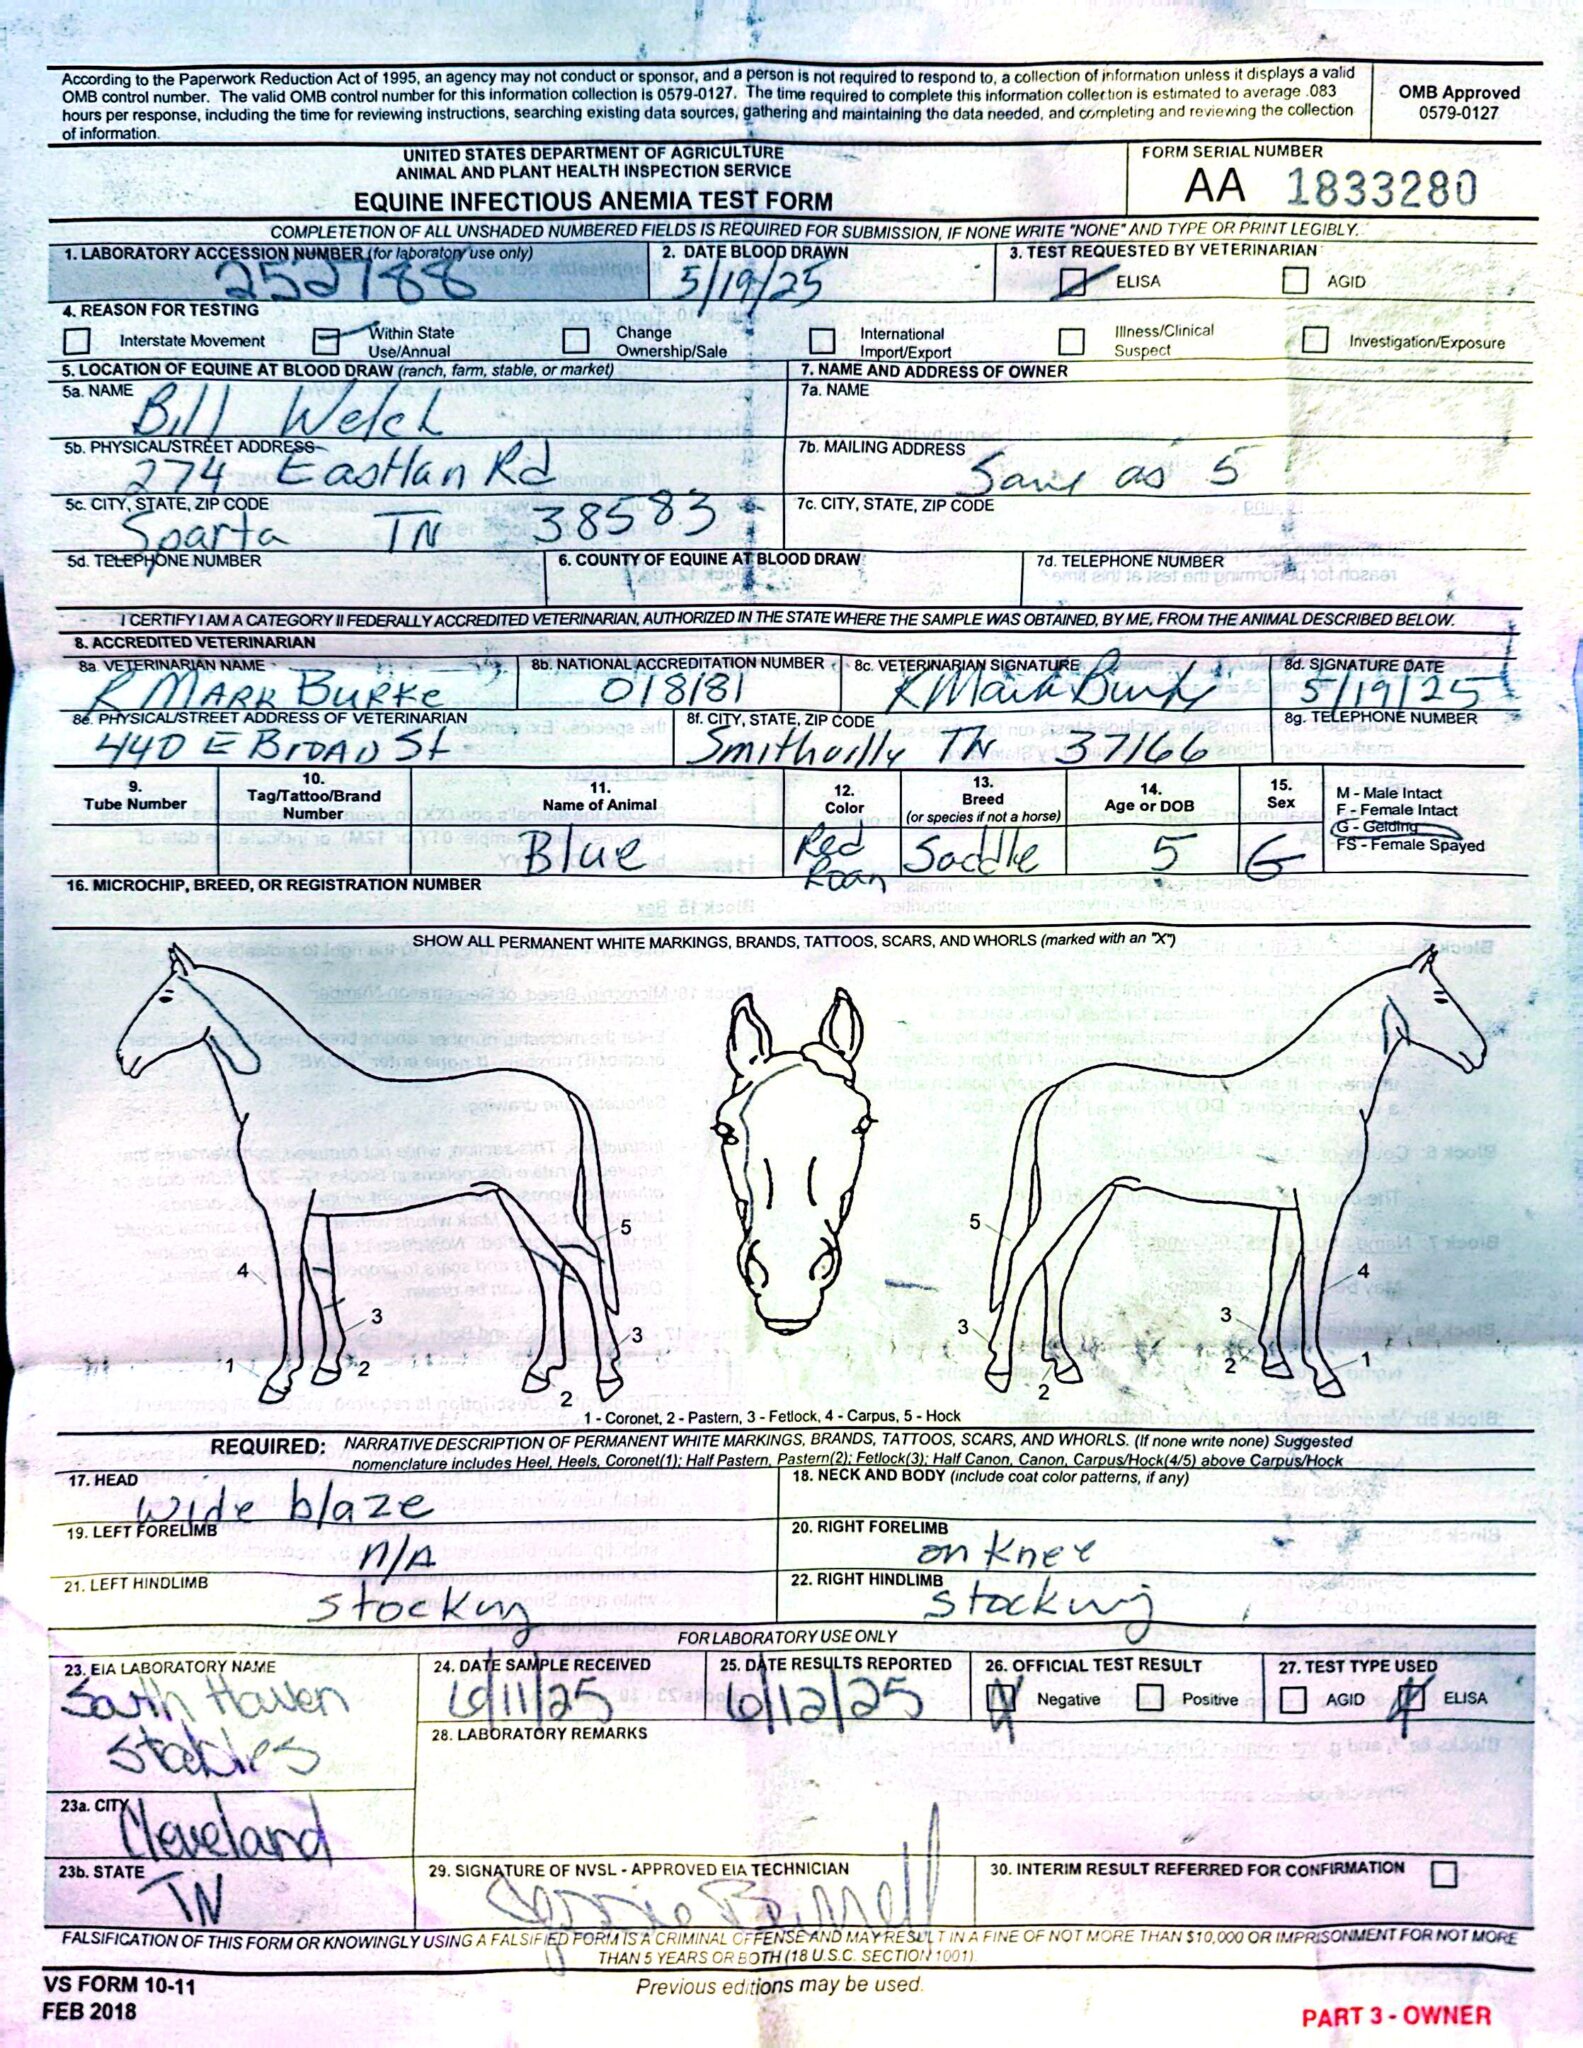 According to the Paperwork Reduction Act of 1995, an agency may not conduct or sponsor, and a person is not required to respond to, a collection of information unless it displays a valid
OMB control number. The valid OMB control number for this information collection is 0579-0127. The time required to complete this information collection is estimated to average .083
hours per response, including the time for reviewing instructions, searching existing data sources, gathering and maintaining the data needed, and completing and reviewing the collection
of information.
OMB Approved
0579-0127
UNITED STATES DEPARTMENT OF AGRICULTURE
ANIMAL AND PLANT HEALTH INSPECTION SERVICE
EQUINE INFECTIOUS ANEMIA TEST FORM
FORM SERIAL NUMBER
AA 1833280
COMPLETETION OF ALL UNSHADED NUMBERED FIELDS IS REQUIRED FOR SUBMISSION, IF NONE WRITE "NONE" AND TYPE OR PRINT LEGIBLY.
1. LABORATORY ACCESSION NUMBER (for laboratory use only)
252788
2. DATE BLOOD DRAWN
5/19/25
3. TEST REQUESTED BY VETERINARIAN
ELISA AGID
4. REASON FOR TESTING
Interstate Movement
Within State
Use/Annual
Change
Ownership/Sale
International
Import/Export
Illness/Clinical
Suspect
Investigation/Exposure
5. LOCATION OF EQUINE AT BLOOD DRAW (ranch, farm, stable, or market)
7. NAME AND ADDRESS OF OWNER
5a. NAME
Bill Welch
7a. NAME
5b. PHYSICAL/STREET ADDRESS
274 Eastlan Rd
7b. MAILING ADDRESS
Same as 5
5c. CITY, STATE, ZIP CODE
Sparta TN 38583
7c. CITY, STATE, ZIP CODE
5d. TELEPHONE NUMBER
6. COUNTY OF EQUINE AT BLOOD DRAW
7d. TELEPHONE NUMBER
I CERTIFY I AM A CATEGORY II FEDERALLY ACCREDITED VETERINARIAN, AUTHORIZED IN THE STATE WHERE THE SAMPLE WAS OBTAINED, BY ME, FROM THE ANIMAL DESCRIBED BELOW.
8. ACCREDITED VETERINARIAN
8a. VETERINARIAN NAME
R MARK BURKE
8b. NATIONAL ACCREDITATION NUMBER
018181
8c. VETERINARIAN SIGNATURE
R Mark Burke
8d. SIGNATURE DATE
5/19/25
8e. PHYSICAL/STREET ADDRESS OF VETERINARIAN
440 E BROAD St
8f. CITY, STATE, ZIP CODE
Smithville TN 37166
8g. TELEPHONE NUMBER
9.
Tube Number
10.
Tag/Tattoo/Brand
Number
11.
Name of Animal
12.
Color
13.
Breed
(or species if not a horse)
14.
Age or DOB
15.
Sex
M - Male Intact
F - Female Intact
G - Gelding
FS - Female Spayed
Blue
Red
Roan
Saddle
5
G
16. MICROCHIP, BREED, OR REGISTRATION NUMBER
SHOW ALL PERMANENT WHITE MARKINGS, BRANDS, TATTOOS, SCARS, AND WHORLS (marked with an "X")
5 5
4 4
3 3 3 3
1 2 2 2 2 1
1 - Coronet, 2 - Pastern, 3 - Fetlock, 4 - Carpus, 5 - Hock
REQUIRED: NARRATIVE DESCRIPTION OF PERMANENT WHITE MARKINGS, BRANDS, TATTOOS, SCARS, AND WHORLS. (If none write none) Suggested
nomenclature includes Heel, Heels, Coronet(1); Half Pastern, Pastern(2); Fetlock(3); Half Canon, Canon, Carpus/Hock(4/5) above Carpus/Hock
17. HEAD
wide blaze
18. NECK AND BODY (include coat color patterns, if any)
19. LEFT FORELIMB
n/A
20. RIGHT FORELIMB
on knee
21. LEFT HINDLIMB
stocking
22. RIGHT HINDLIMB
stocking
FOR LABORATORY USE ONLY
23. EIA LABORATORY NAME
South Haven
Stables
24. DATE SAMPLE RECEIVED
6/11/25
25. DATE RESULTS REPORTED
6/12/25
26. OFFICIAL TEST RESULT
Negative Positive
27. TEST TYPE USED
AGID ELISA
28. LABORATORY REMARKS
23a. CITY
Cleveland
23b. STATE
TN
29. SIGNATURE OF NVSL - APPROVED EIA TECHNICIAN
30. INTERIM RESULT REFERRED FOR CONFIRMATION
FALSIFICATION OF THIS FORM OR KNOWINGLY USING A FALSIFIED FORM IS A CRIMINAL OFFENSE AND MAY RESULT IN A FINE OF NOT MORE THAN $10,000 OR IMPRISONMENT FOR NOT MORE
THAN 5 YEARS OR BOTH (18 U.S.C. SECTION 1001).
VS FORM 10-11
FEB 2018
Previous editions may be used.
PART 3 - OWNER